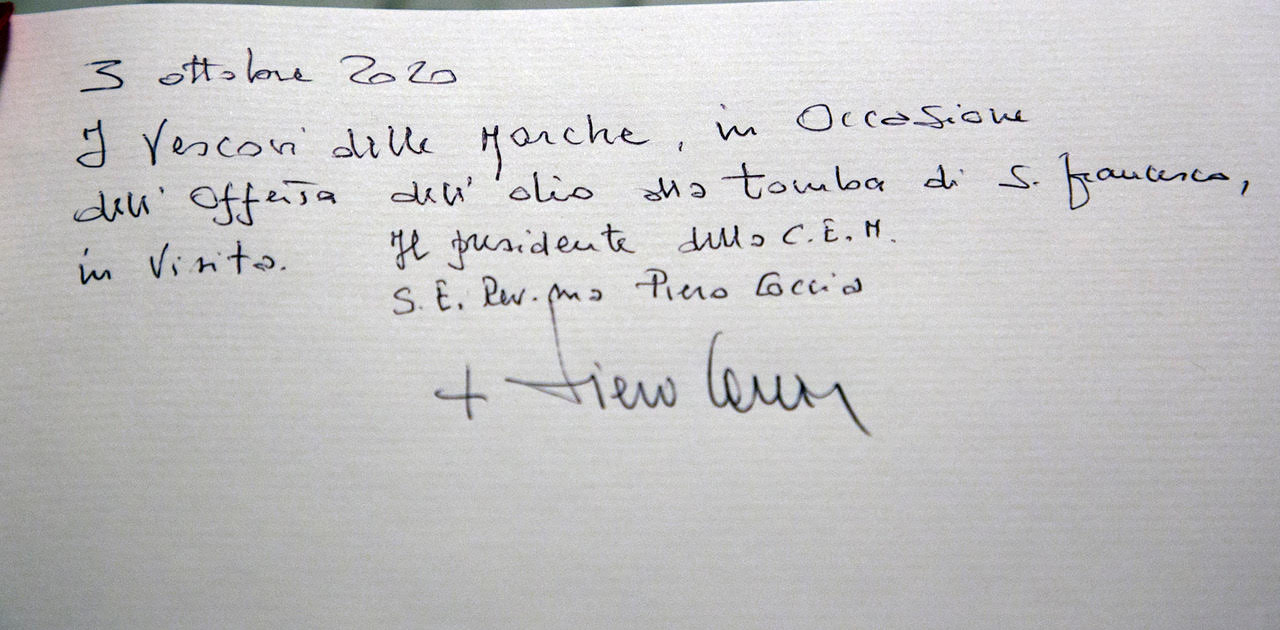 3 ottobre 2020
I Vescovi delle Marche, in Occasione
dell'Offerta dell'olio alla tomba di S. Francesco,
in visita. Il presidente della C.E.M.
S.E. Rev.ma Piero Coccia
+ Piero Coccia